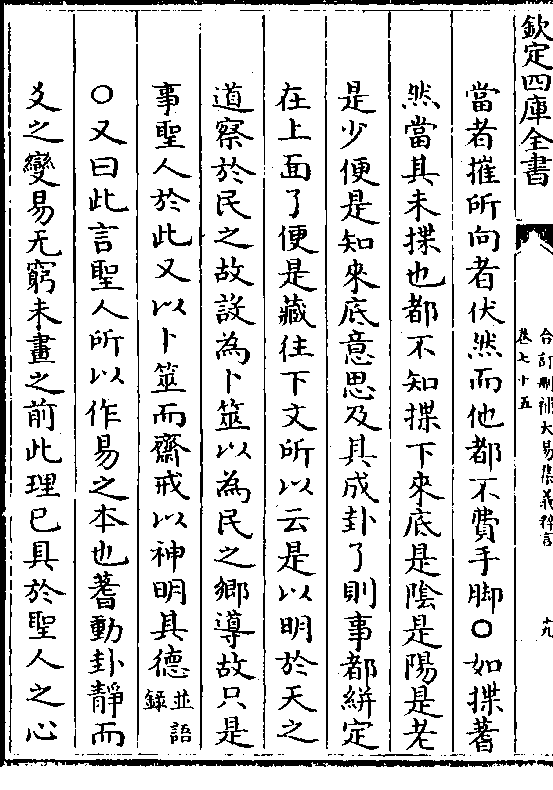 欽定四庫全書
合訂刪補大易集義粹言
卷七十五
十九
當者摧所向者伏然而他都不費手脚○如揲蓍
然當其未揲也都不知揲下來底是陰是陽是老
是少便是知來底意思及其成卦了則事都絣定
在上面了便是藏往下文所以云是以明於天之
道察於民之故設為卜筮以為民之鄉導故只是
事聖人於此又以卜筮而齋戒以神明其德並語錄
○又曰此言聖人所以作易之本也蓍動卦靜而
爻之變易无窮未畫之前此理已具於聖人之心